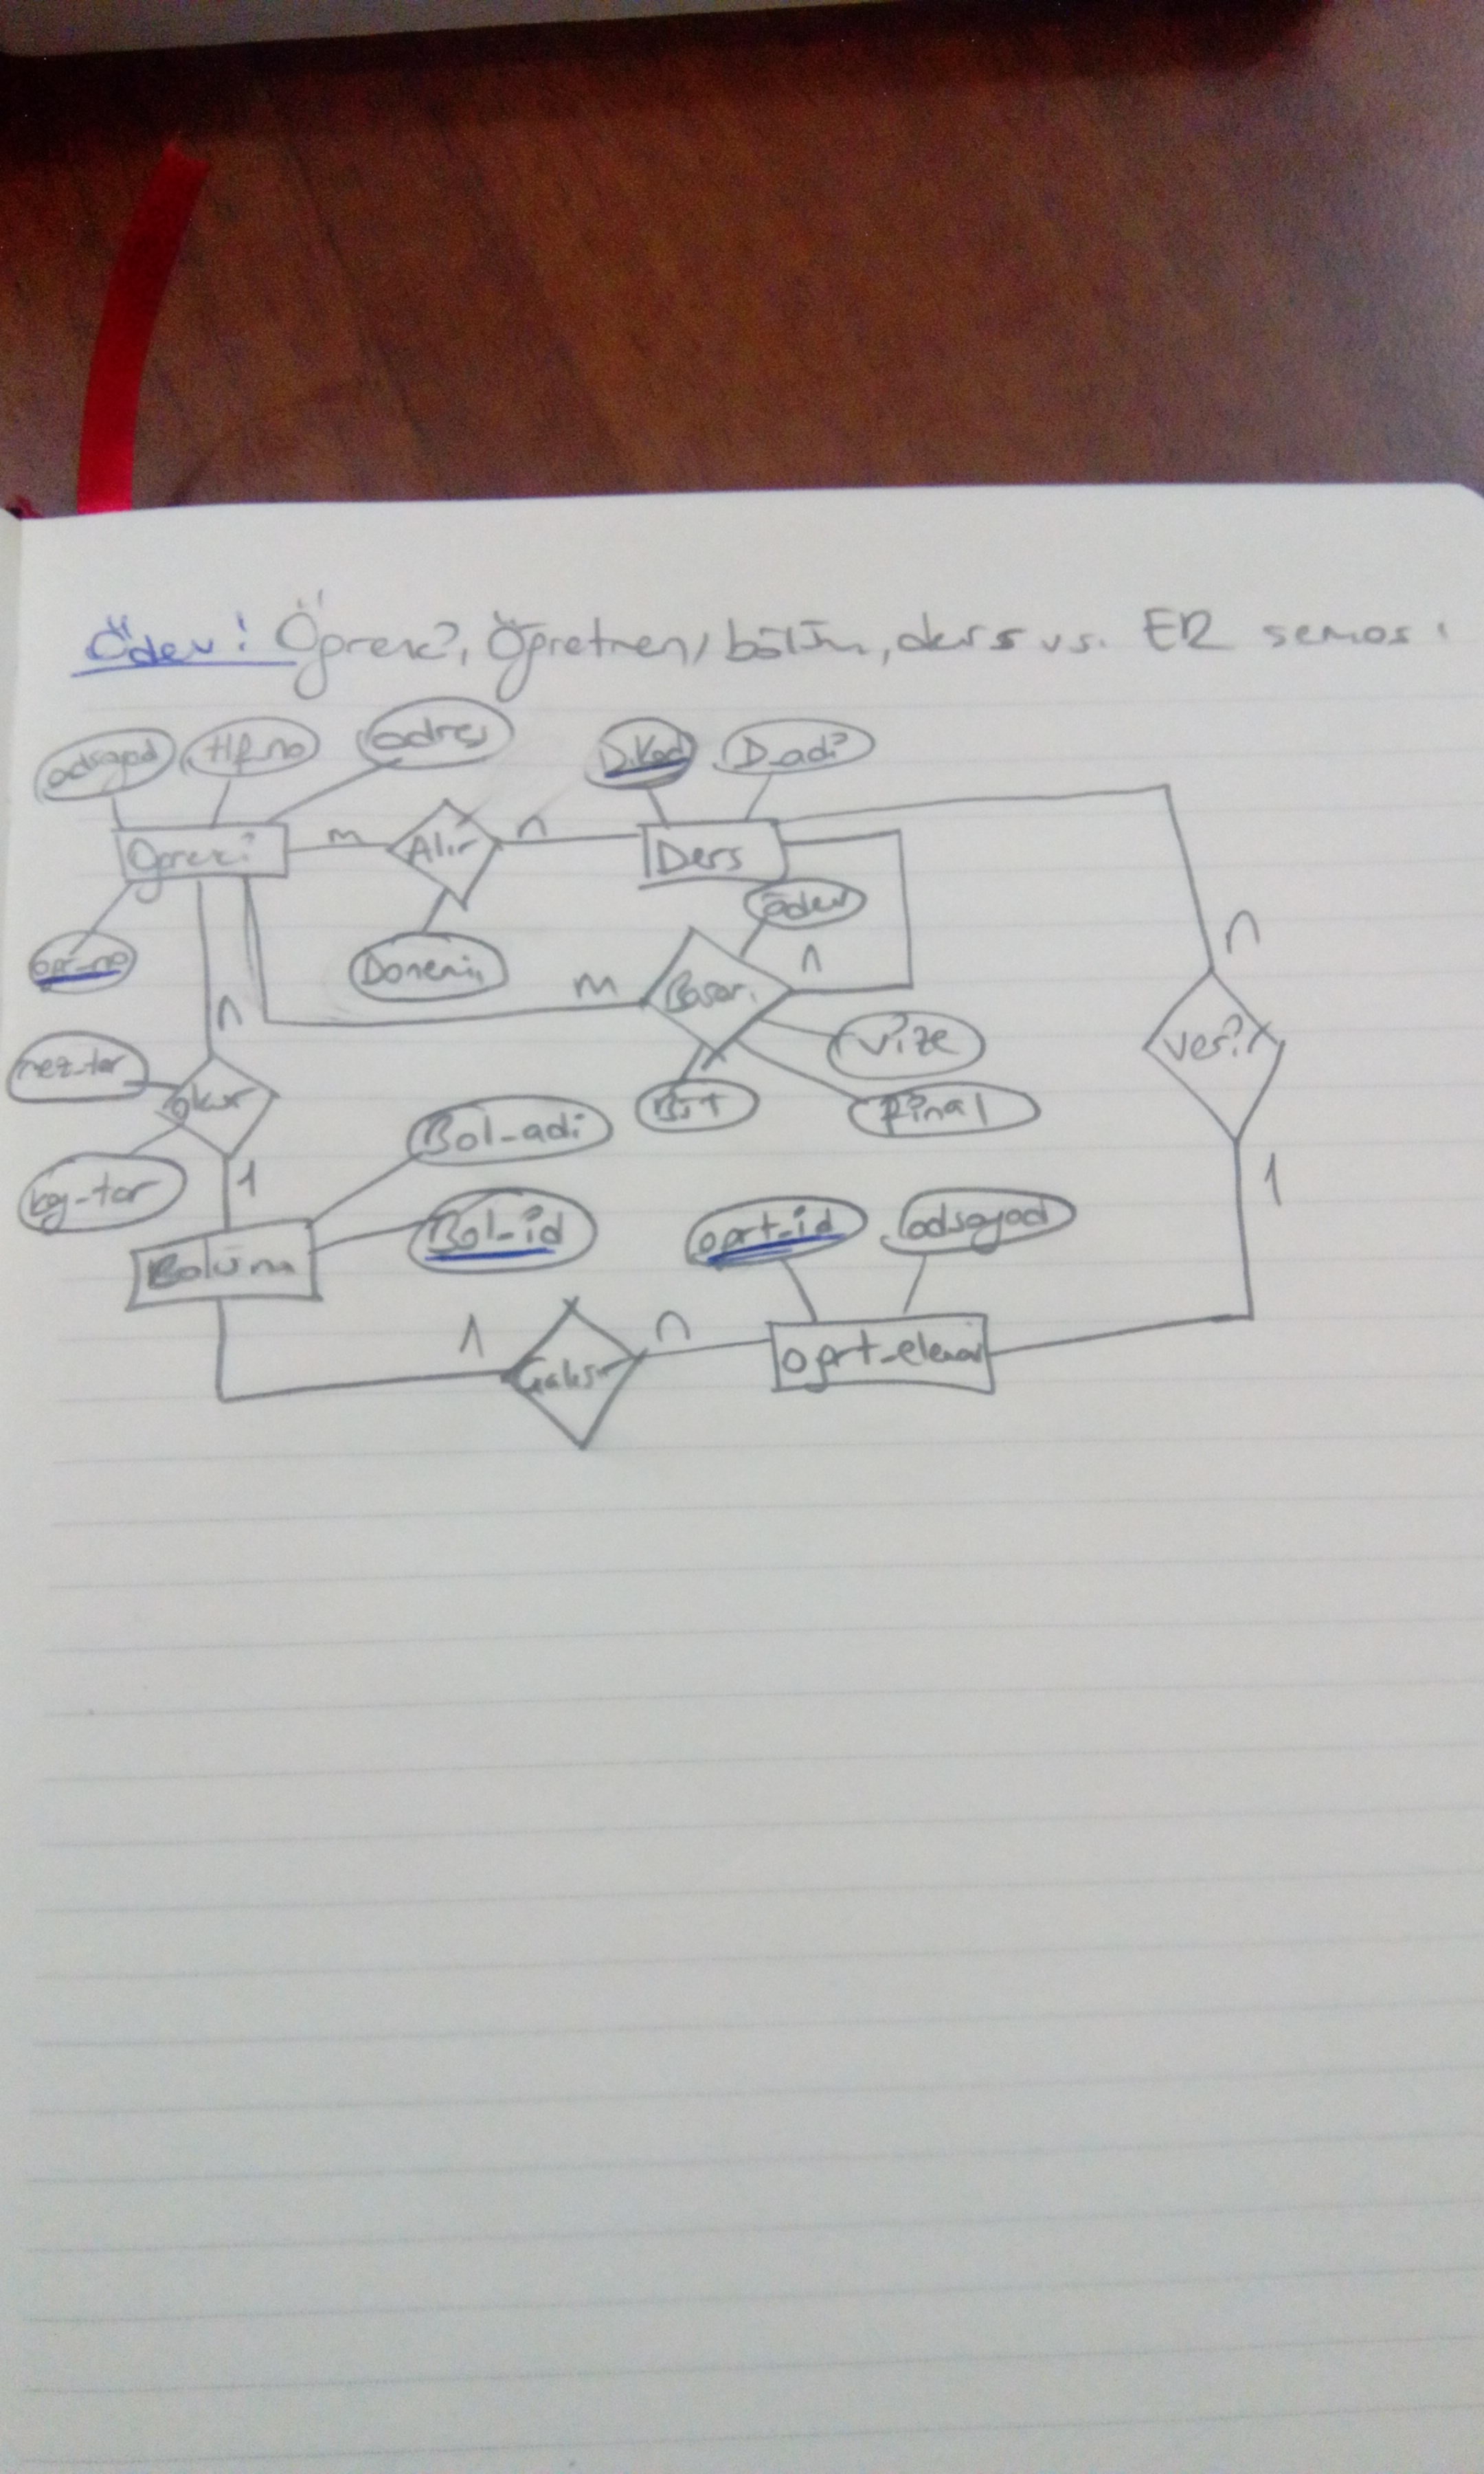 Ödev: Öğrenci, Öğretmen, bölüm, ders vs. ER şeması
adsoyad Tlf_no adres D.Kod D_adi
Öğrenci m Alır n Ders
ödev
ogr-no Donemi m Basarı n n
mez-tar n okur Vize verir
Büt Final
Bol-adi
kay-tar 1 1
Bol-id ogrt-id adsoyad
Bolüm
1 Calısır n ogrt-elemanı